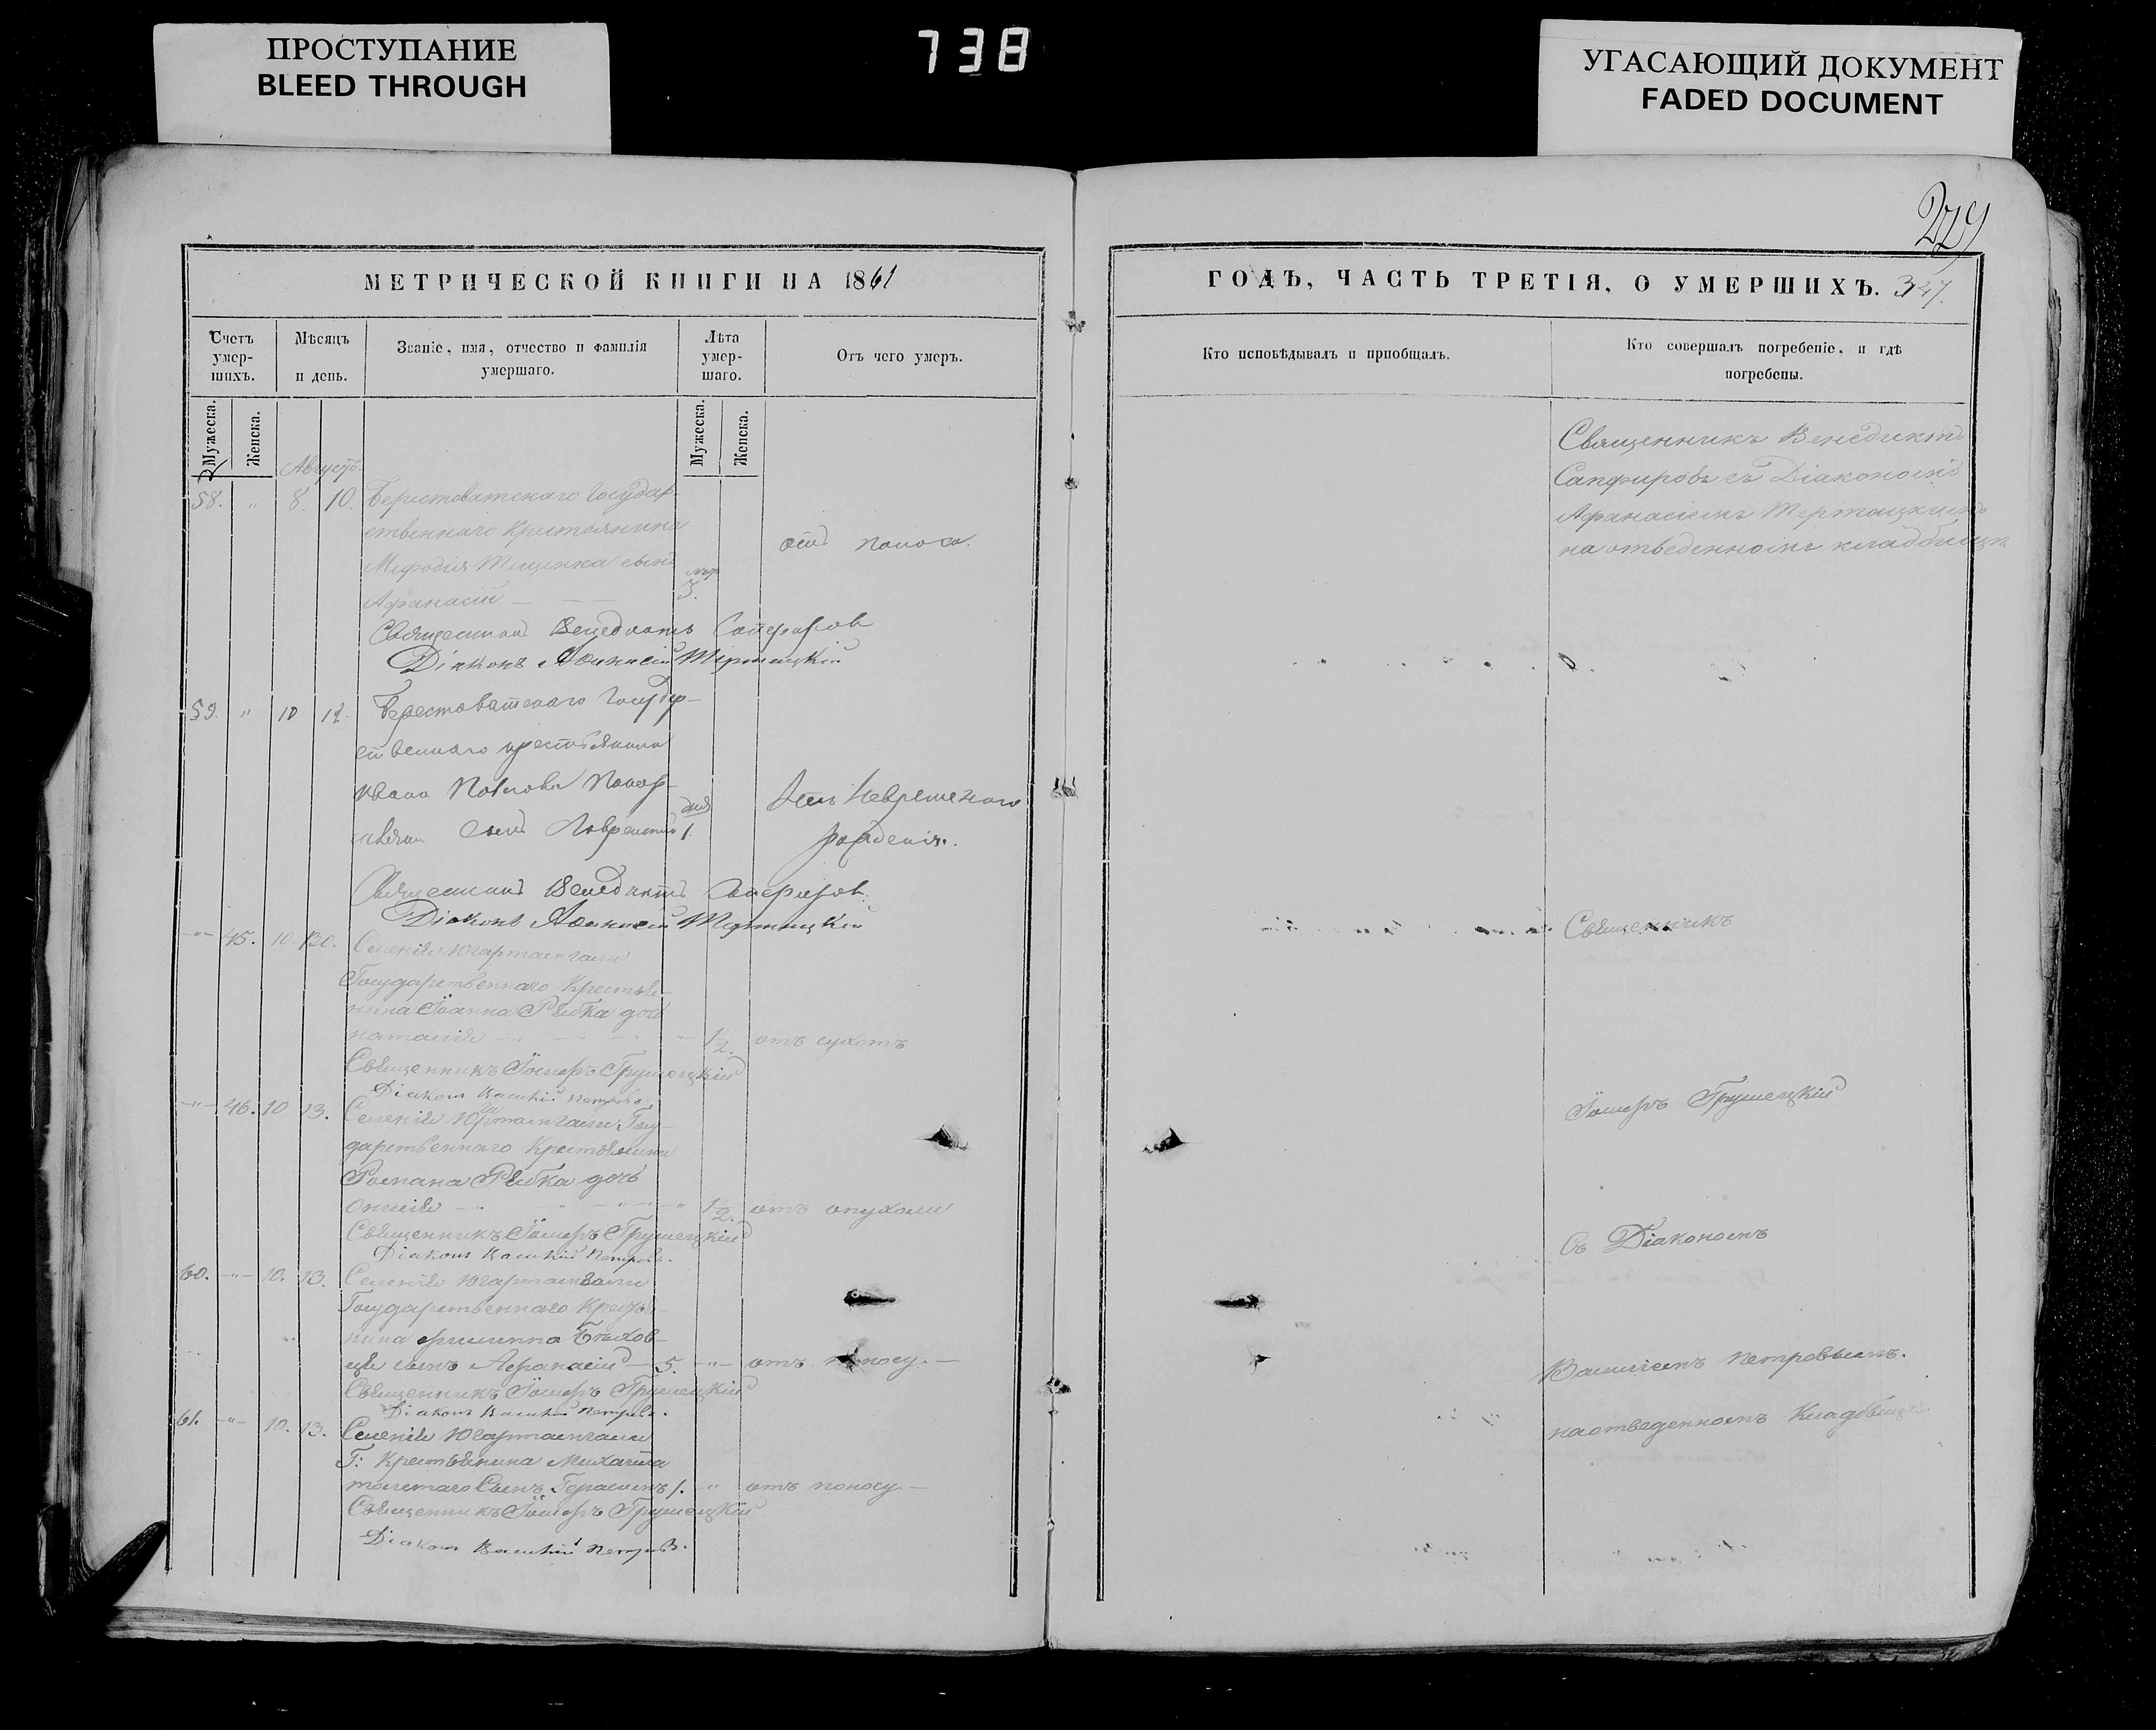 ПРОСТУПАНИЕ
BLEED THROUGH
738
УГАСАЮЩИЙ ДОКУМЕНТ
FADED DOCUMENT
229
МЕТРИЧЕСКОЙ КНИГИ НА 1861
Счетъ умер-шихъ.
Мѣсяцъ и день.
Званіе, имя, отчество и фамилія умершаго.
Лѣта умер-шаго.
Отъ чего умеръ.
Мужеска.
Женска.
Мужеска.
Женска.
Августъ.
58. " 8. 10. Берестоватскаго Государ-
ственнаго Крестьянина
Мефодія Тищенка сынъ
Афанасій 3. отъ поноса.
Священникъ Венедиктъ Сапфировъ
Діаконъ Афанасій
59. " 10 12. Берестоватскаго Государ-
ственнаго крестьянина
Ивана Павлова
сынъ Лаврентій 1. дня Отъ Невременаго
рожденія.
Священникъ Венедиктъ Сапфировъ.
Діаконъ Афанасій
-"- 45. 10. Селенія
Государственнаго Крестья-
нина Іоанна Рыбка дочь
Наталія 1/2. отъ сухотъ
Священникъ Іосифъ Грушецкій
Діаконъ Василій Петровъ.
-"- 46. 10 13. Селенія Госу-
дарственнаго Крестьянина
Романа Рыбка дочь
1/2. отъ опухоли
Священникъ Іосифъ Грушецкій
Діаконъ Василій Петровъ.
60. -"- 10. 13. Селенія
Государственнаго Крестья-
нина Филиппа
сынъ Афанасій 5. -"- отъ поносу.
Священникъ Іосифъ Грушецкій
Діаконъ Василій Петровъ.
61. -"- 10. 13. Селенія
Г: Крестьянина Михаила
Толстаго Сынъ Герасимъ 1. " отъ поносу
Священникъ Іосифъ Грушецкій
Діаконъ Василій Петровъ.
ГОДЪ, ЧАСТЬ ТРЕТІЯ, О УМЕРШИХЪ. 347.
Кто исповѣдывалъ и пріобщалъ.
Кто совершалъ погребеніе, и гдѣ погребены.
Священникъ Венедиктъ
Сапфировъ съ Діакономъ
Афанасіемъ
на отведенномъ кладбищѣ
Священникъ
Іосифъ Грушецкій
Съ Діакономъ
Василіемъ Петровымъ.
на отведенномъ Кладбищѣ